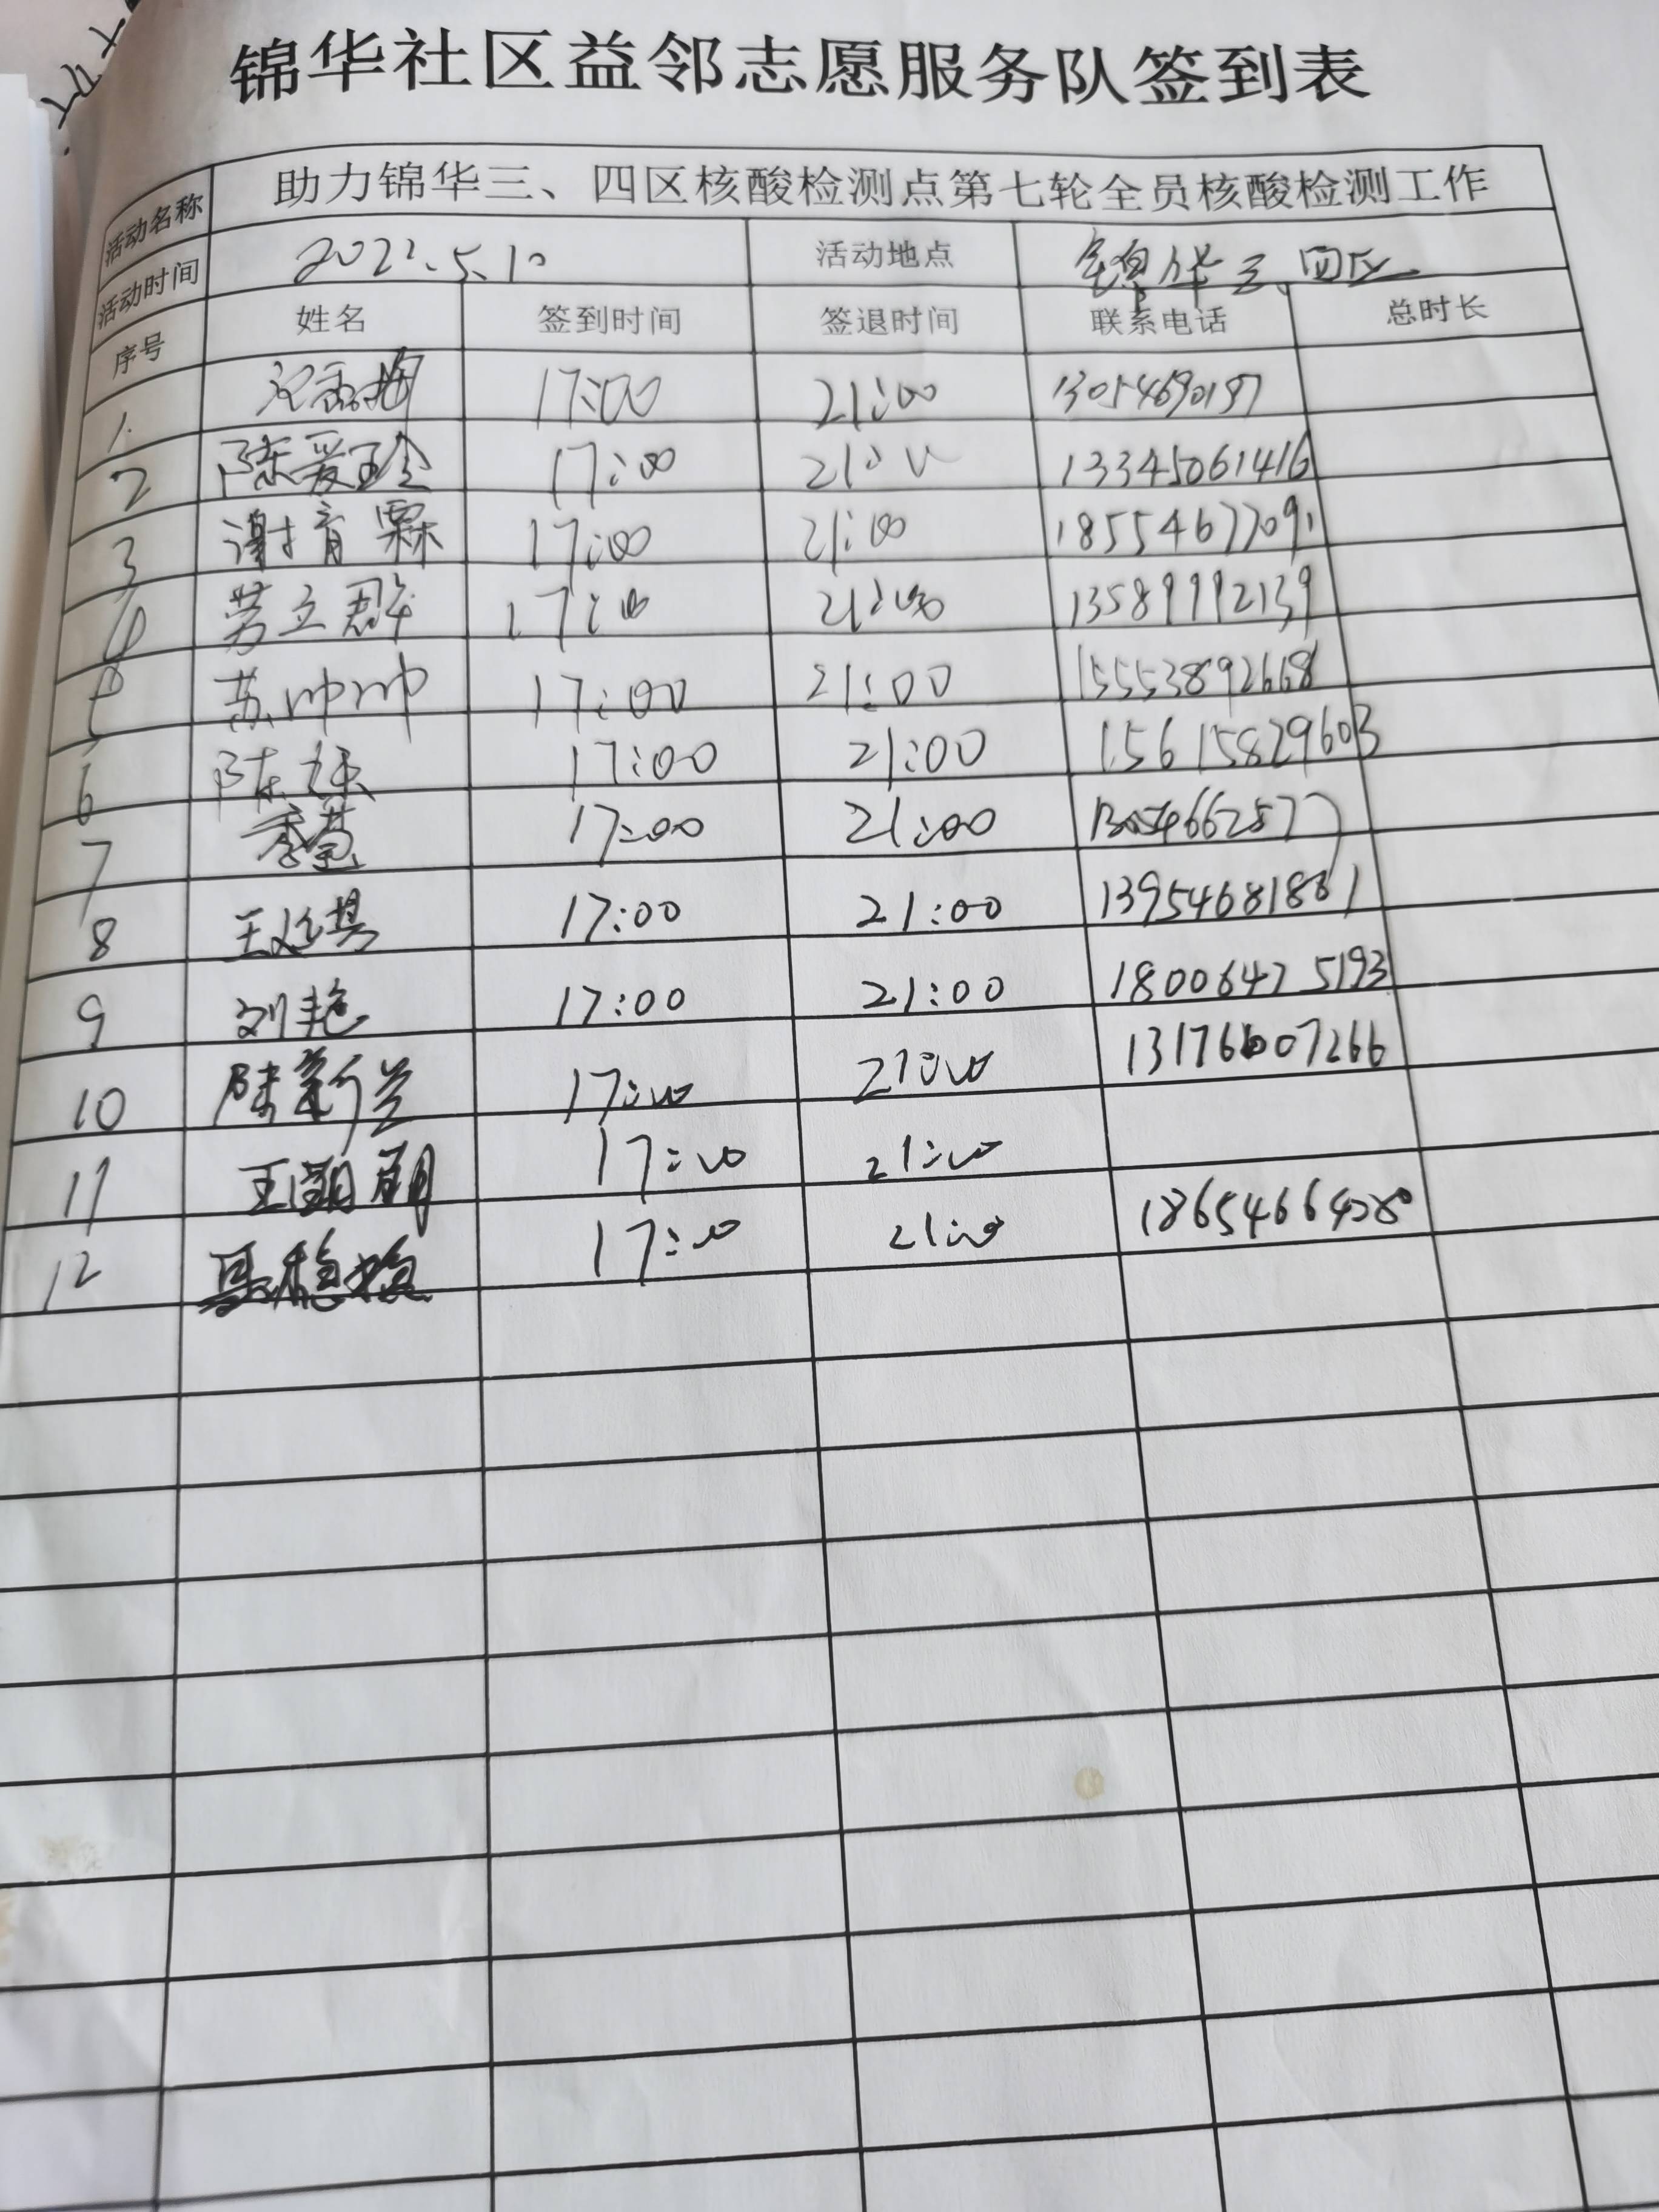 锦华社区益邻志愿服务队签到表
活动名称 助力锦华三、四区核酸检测点第七轮全员核酸检测工作
活动时间 2022.5.10 活动地点 锦华三、四区
序号 姓名 签到时间 签退时间 联系电话 总时长
1. 17:00 21:00 13054690197
2 陈爱玲 17:00 21:00 13345061416
3 谢育霖 17:00 21:00 18554677091
4 劳立群 17:00 21:00 13589992139
5 苏帅帅 17:00 21:00 15553892668
6 陈 17:00 21:00 15615829603
7 季 17:00 21:00 13054662877
8 王延 17:00 21:00 13954681881
9 刘艳 17:00 21:00 18006475193
10 陈新兰 17:00 21:00 13176607266
11 王 17:00 21:00
12 聂穏 17:00 21:00 18654664280